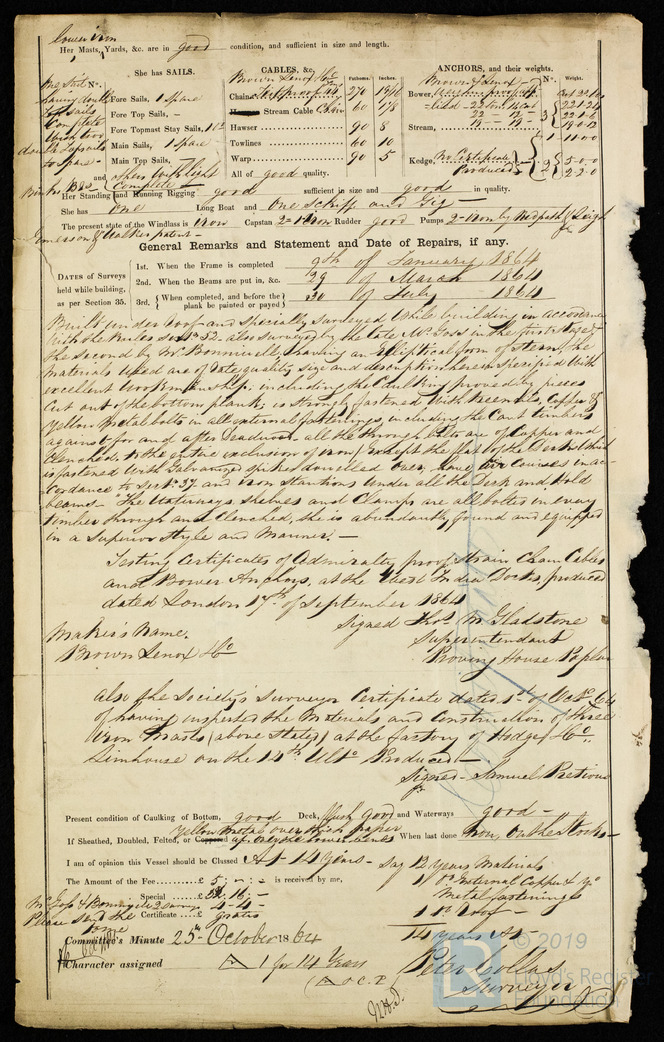 lower iron
Her Masts, Yards, &c. are in good condition, and sufficient in size and length.
She has SAILS.
CABLES, &c.
Fathoms.
Inches.
ANCHORS, and their weights.
Nº.
Weight.
No.
Fore Sails, 1 Spare
Fore Top Sails, –
Fore Topmast Stay Sails,
Main Sails, 1 spare
Main Top Sails,
and others with light
Complete
having double
top sails
Brown Lenox & Co
Chain 270
Stream Cable Chain 60
Hawser 90 8
Towlines 60 10
Warp 90 5
All of good quality.
Brown & Lenox
Bower,
Stream, 1 11.0.0
Kedge, No Certificate
Produced
5-0-0
2-2-0
Her Standing and Running Rigging good sufficient in size and good in quality.
She has one Long Boat and one Skiff and Gig –
The present state of the Windlass is iron Capstan 2 iron Rudder good Pumps 2 iron by Redpath & Leigh
Emerson & Walker patent –
General Remarks and Statement and Date of Repairs, if any.
DATES of Surveys
held while building,
as per Section 35.
1st. When the Frame is completed 9th of January 1864
2nd. When the Beams are put in, &c. 29 of March 1864
3rd. { When completed, and before the
plank be painted or payed } 30 of July 1864
Built under roof and Specially Surveyed while building in accordance
with the Rules Sectn 52. also surveyed by the late Mr Goss in the first stage &
the second by Mr Bonniwell, having an Elliptical form of Stern, the
materials used are of the quality size and description herein specified With
excellent workmanship: including the Caulking proved by pieces
cut out of the bottom plank, is strongly fastened With treenails, Copper &
Yellow Metal bolts in all external fastenings including the Cant timbers
against for and after deadwood – all the through bolts are of Copper and
Clenched, to the entire exclusion of iron except the flat of the Deck Which
is fastened With Galvanized spikes dowelled over, have air Courses in ac-
cordance to Sectn 37 and iron Stantions under all the Deck and Hold
beams – The Waterways, shelves and Clamps are all bolted in every
timber through and Clenched, she is abundantly found and equipped
in a Superior Style and Manner. –
Testing Certificates of Admiralty proof Strain Chain Cables
and Bower Anchors, at the West India Docks, produced
dated London 17th of September 1864
Signed Thos M Gladstone
Superintendant
Proving House Poplar
Maker's Name.
Brown Lenox & Co
Also the Society's Surveyor Certificate dated 1st of Octr 64
of having inspected the Materials and Construction of three
Iron Masts (above Stated) at the factory of Hodge & Co.
Limehouse on the 14th Ulto Produced –
Signed – Samuel Pretious
Present condition of Caulking of Bottom, good Deck, flush good and Waterways good –
Yellow metal over thick paper
If Sheathed, Doubled, Felted, or Coppered When last done Now, on the Stocks –
I am of opinion this Vessel should be Classed A1 14 years – Say 12 years Materials
The Amount of the Fee......£ 5 " – " – is received by me, 1 Do External Copper & Yo
Metal fastenings
Special ......£
Mr Goss & Bonniwell 2 surveys 4-4-
Please send the
Certificate ....£ gratis
1 Do Roof –
14 years A1
Committee's Minute 25th October 1864
Character assigned A 1 for 14 Years
Peter Collas
Surveyor
© 2019
LR
Lloyd's Register
Foundation